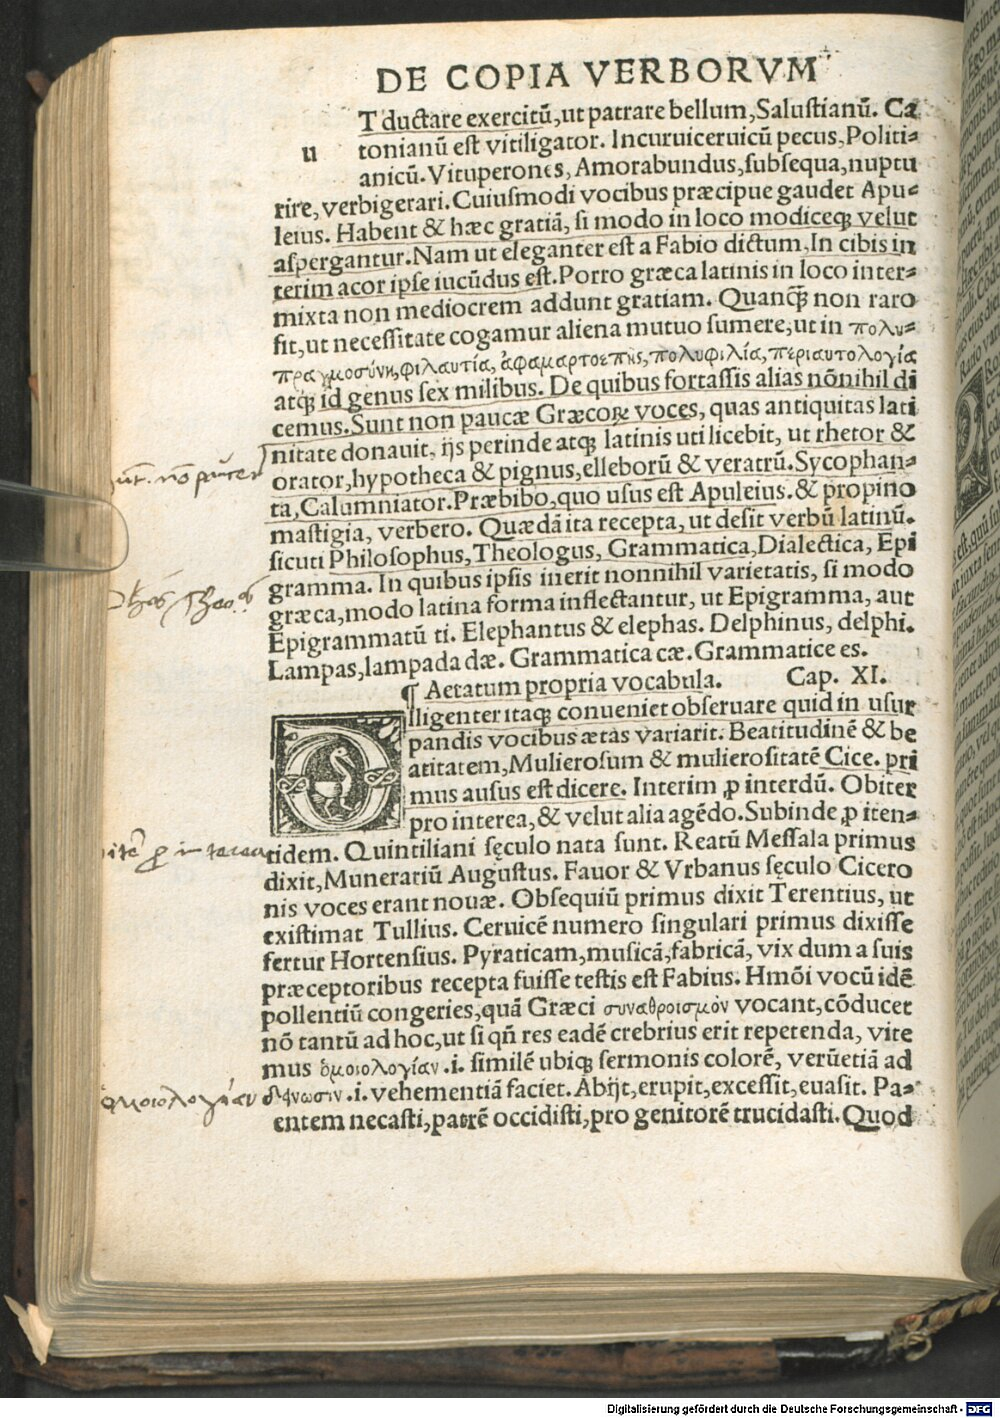 DE COPIA VERBORVM
T ductare exercitū,ut patrare bellum,Salustianū. Ca
u tonianū est vitiligator. Incuruiceruicū pecus,Politi⸗
anicū. Vituperones, Amorabundus,subsequa,nuptu
rire, verbigerari. Cuiusmodi vocibus præcipue gaudet Apu⸗
leius. Habent & hæc gratiā, si modo in loco modiceqꝫ velut
aspergantur. Nam ut eleganter est a Fabio dictum,In cibis in
terim acor ipse iucūdus est. Porro græca latinis in loco inter⸗
mixta non mediocrem addunt gratiam. Quanqꝫ̄ non raro
fit,ut necessitate cogamur aliena mutuo sumere,ut in πολυ⸗
πραγμοσύνη,φιλαυτία, ἀφαμαρτοεπης, πολυφιλία, περιαυτολογία
atqꝫ id genus sex milibus. De quibus fortassis alias nōnihil di
cemus. Sunt non paucæ Græcoꝝ voces, quas antiquitas lati
nitate donauit, ijs perinde atqꝫ latinis uti licebit, ut rhetor &
orator,hypotheca & pignus,elleborū & veratrū. Sycophan⸗
ta, Calumniator. Præbibo,quo usus est Apuleius. & propino
mastigia, verbero. Quædā ita recepta, ut desit verbū latinū.
sicuti Philosophus, Theologus, Grammatica,Dialectica, Epi
gramma. In quibus ipsis inerit nonnihil varietatis, si modo
græca,modo latina forma inflectantur, ut Epigramma, aut
Epigrammatū ti. Elephantus & elephas. Delphinus, delphi.
Lampas,lampada dæ. Grammatica cæ. Grammatice es.
¶ Aetatum propria vocabula. Cap. XI.
Diligenter itaqꝫ conueniet obseruare quid in usur
pandis vocibus ætas variarit. Beatitudinē & be
atitatem, Mulierosum & mulierositatē Cice. pri
mus ausus est dicere. Interim ꝓ interdū. Obiter
pro interea, & velut alia agēdo. Subinde ꝓ iten⸗
tidem. Quintiliani sęculo nata sunt. Reatū Messala primus
dixit, Muneratiū Augustus. Fauor & Vrbanus sęculo Cicero
nis voces erant nouæ. Obsequiū primus dixit Terentius, ut
existimat Tullius. Ceruicē numero singulari primus dixisse
fertur Hortensius. Pyraticam,musicā,fabricā, vix dum a suis
præceptoribus recepta fuisse testis est Fabius. Hmōi vocū idē
pollentiū congeries,quā Græci συναθροισμὸν vocant,cōducet
nō tantū ad hoc,ut si qn̄ res eadē crebrius erit repetenda, vite
mus ὁμοιολογίαν .i. similē ubiqꝫ sermonis colorē, verūetiā ad
δήνωσιν .i. vehementiā faciet. Abijt, erupit, excessit, euasit. Pa⸗
entem necasti, patrē occidisti,pro genitorē trucidasti. Quod
ὁμοιολογίαν
Digitalisierung gefördert durch die Deutsche Forschungsgemeinschaft - DFG